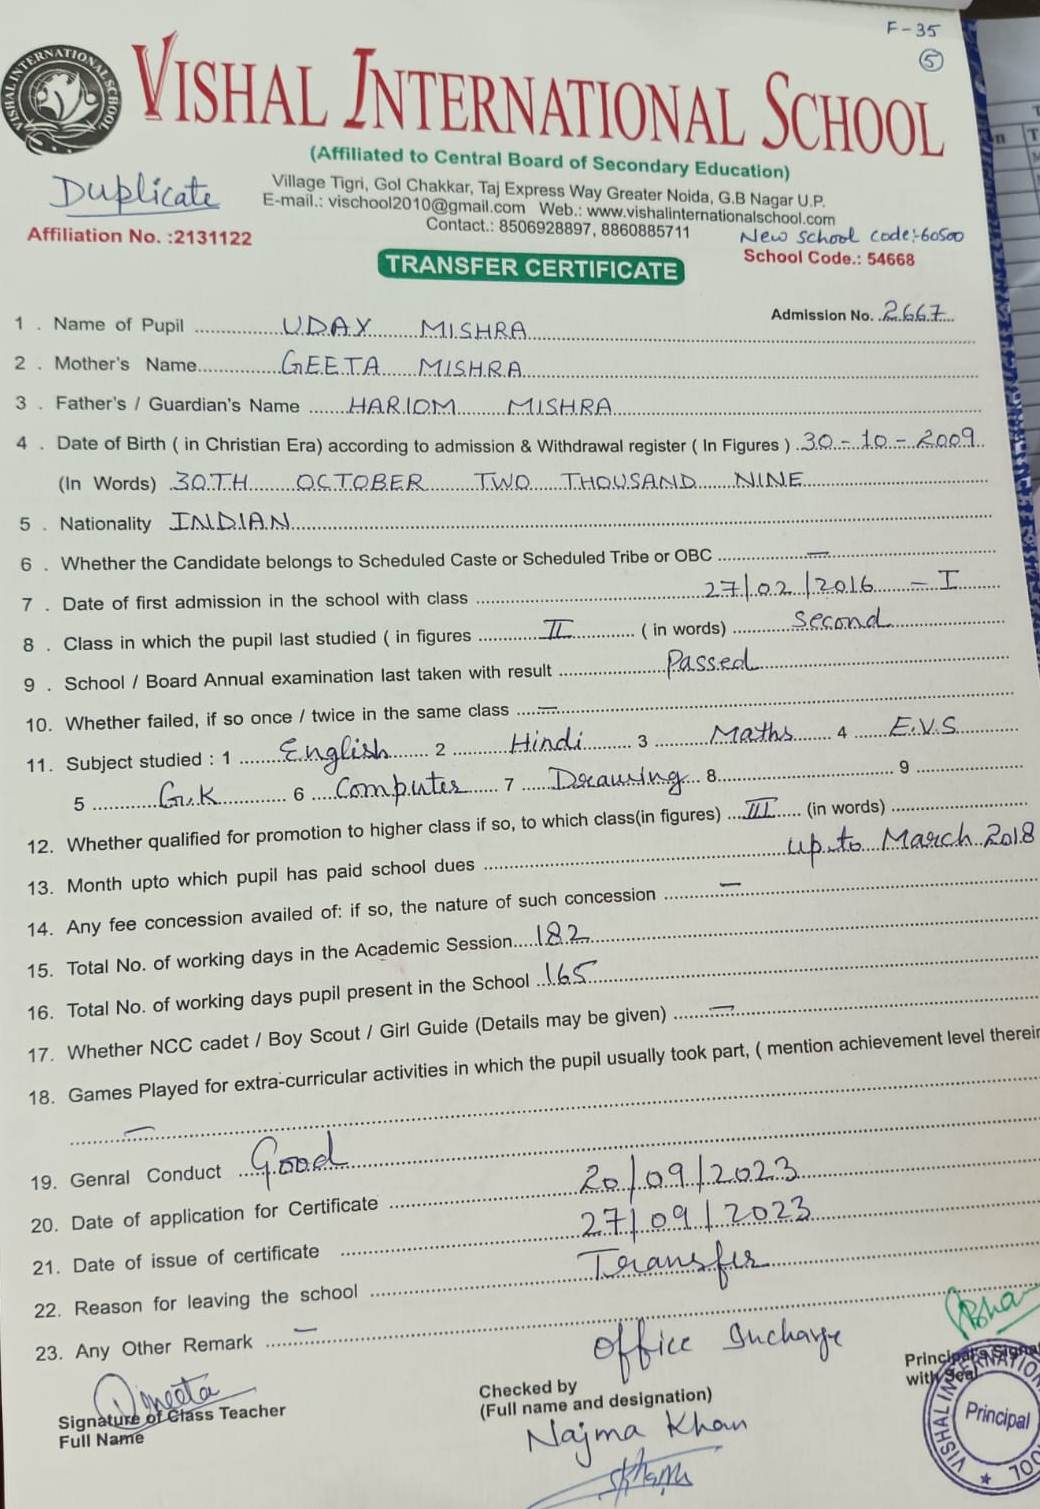 F-35
5
VISHAL INTERNATIONAL SCHOOL
VISHAL INTERNATIONAL SCHOOL
(Affiliated to Central Board of Secondary Education)
Duplicate
Village Tigri, Gol Chakkar, Taj Express Way Greater Noida, G.B Nagar U.P.
E-mail.: vischool2010@gmail.com Web.: www.vishalinternationalschool.com
Contact.: 8506928897, 8860885711
New School code:-60500
Affiliation No. :2131122
School Code.: 54668
TRANSFER CERTIFICATE
Admission No. 2667
1 . Name of Pupil UDAY MISHRA
2 . Mother's Name GEETA MISHRA
3 . Father's / Guardian's Name HARIOM MISHRA
4 . Date of Birth ( in Christian Era) according to admission & Withdrawal register ( In Figures ) 30-10-2009
(In Words) 30TH OCTOBER TWO THOUSAND NINE
5 . Nationality INDIAN
6 . Whether the Candidate belongs to Scheduled Caste or Scheduled Tribe or OBC —
7 . Date of first admission in the school with class 27/02/2016 - I
8 . Class in which the pupil last studied ( in figures II ( in words) Second
9 . School / Board Annual examination last taken with result Passed
10. Whether failed, if so once / twice in the same class —
11. Subject studied : 1 English 2 Hindi 3 Maths 4 E.V.S
5 G.K 6 Computer 7 Drawing 8 9
12. Whether qualified for promotion to higher class if so, to which class(in figures) III (in words)
13. Month upto which pupil has paid school dues up to March 2018
14. Any fee concession availed of: if so, the nature of such concession —
15. Total No. of working days in the Academic Session 182
16. Total No. of working days pupil present in the School 165
17. Whether NCC cadet / Boy Scout / Girl Guide (Details may be given) —
18. Games Played for extra-curricular activities in which the pupil usually took part, ( mention achievement level therein
—
19. Genral Conduct Good
20. Date of application for Certificate 20/09/2023
21. Date of issue of certificate 27/09/2023
22. Reason for leaving the school Transfer
23. Any Other Remark —
Office Incharge
Signature of Class Teacher
Full Name
Checked by
(Full name and designation)
Najma Khan
Principal's Signa
with Seal
VISHAL INTERNATION
Principal
OOL